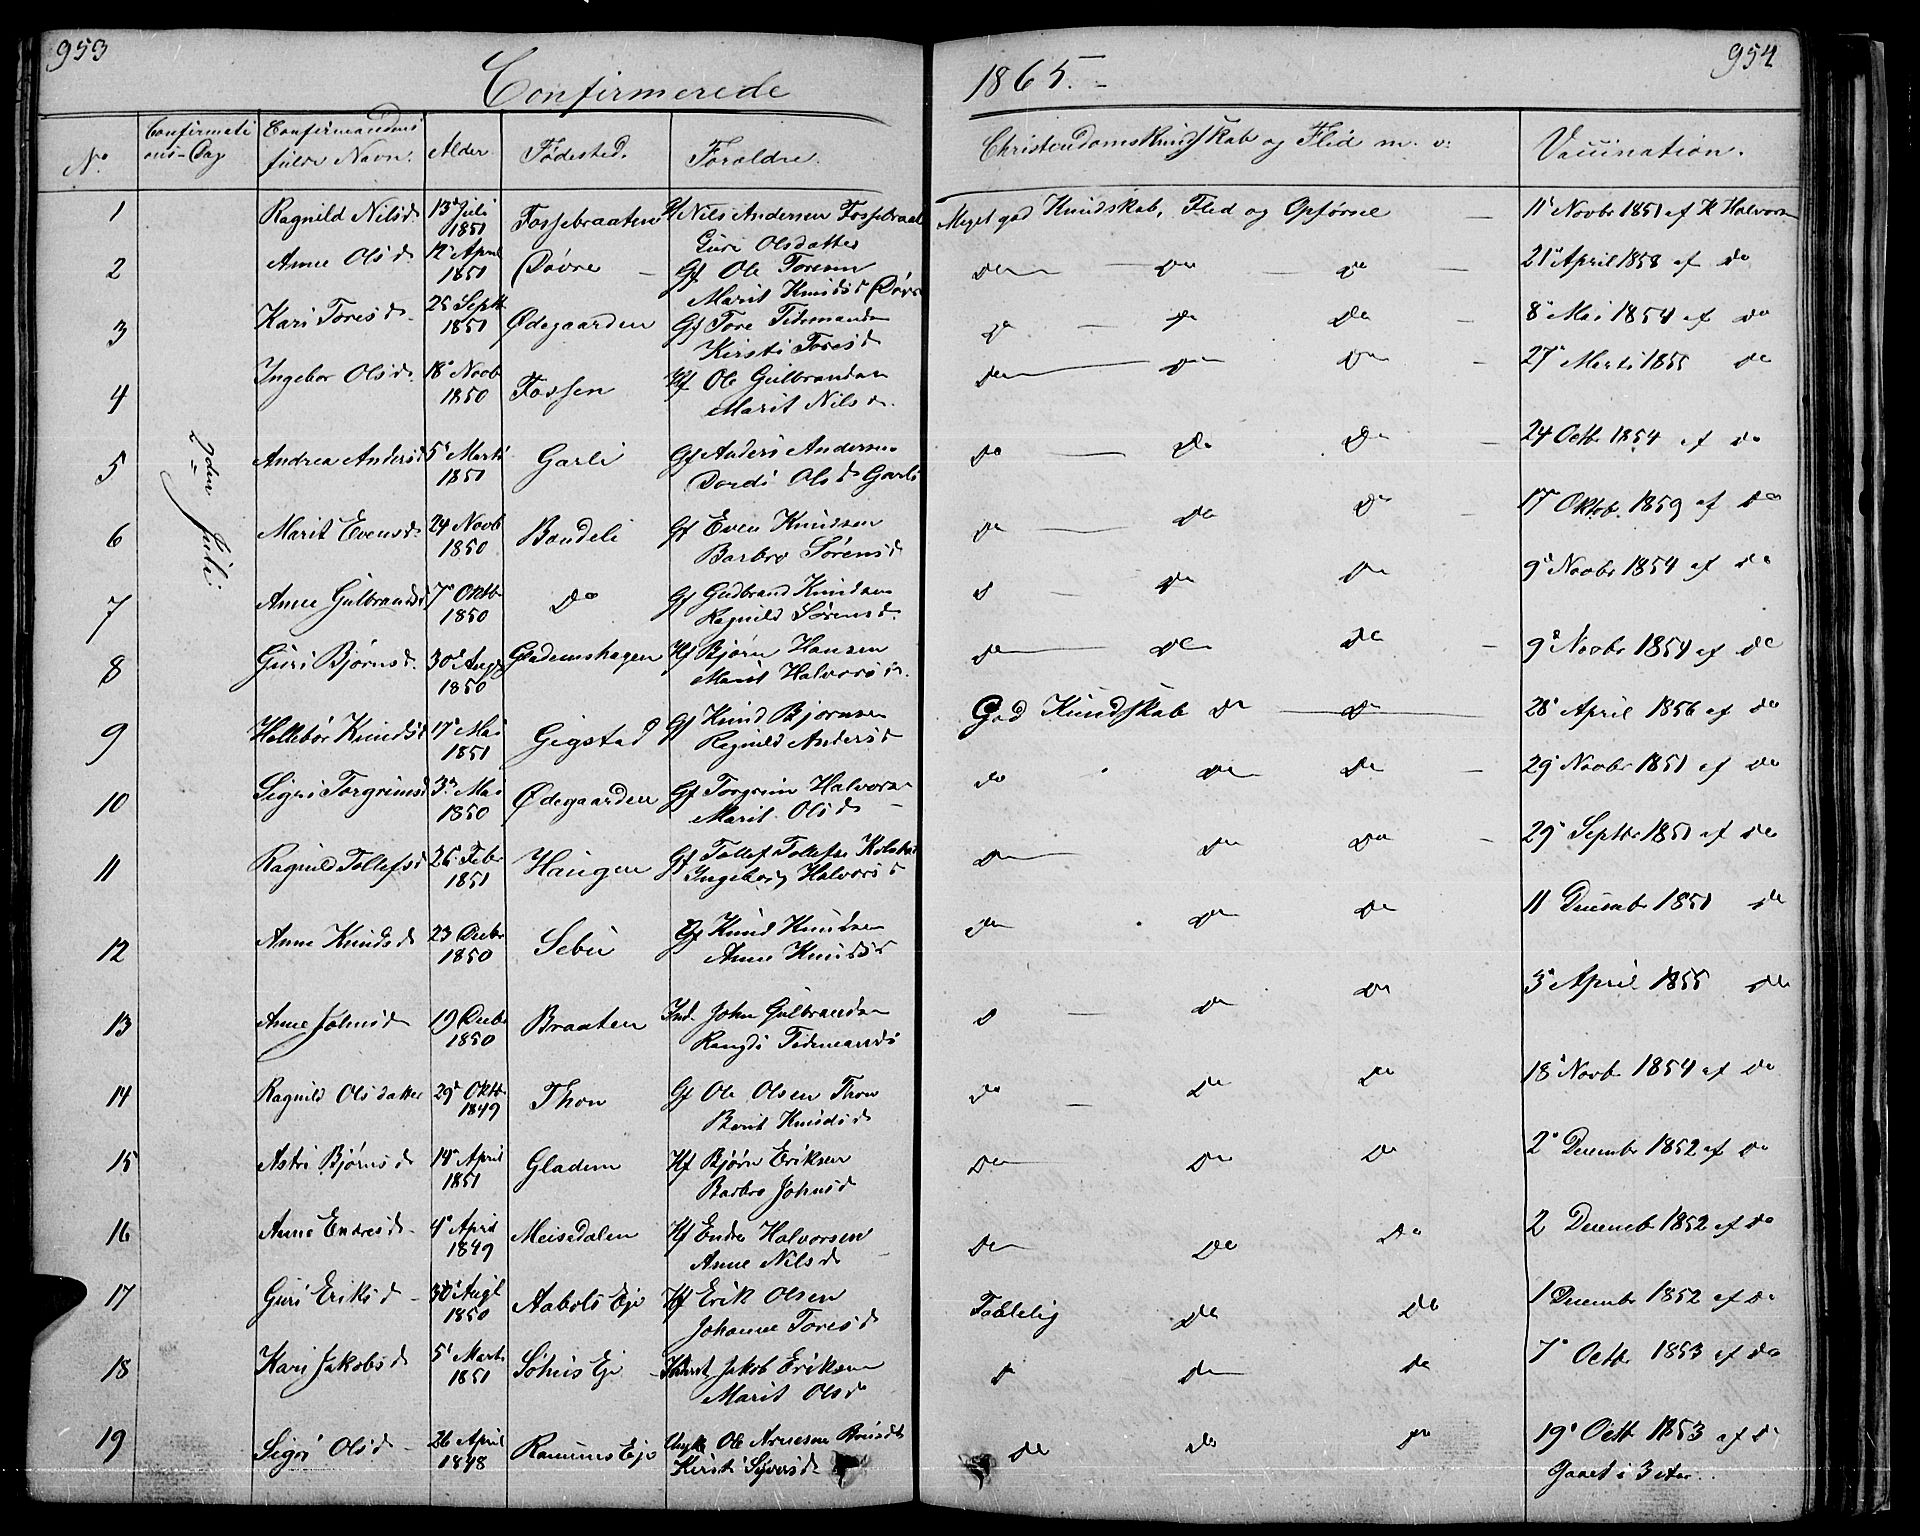 953
954
Confirmerede
1865.
No
Confirmati
ons-Dag
Confirmandens
fulde Navn.
Alder.
Fødested.
Forældre.
Christendomskundskab og Flid m. v.
Vaccination.
2den Juli
1 Ragnild Nilsd 13 Juli 1851 Fossebraaten Nils Andersen Guri Olsdatter Meget god Kundskab, Flid og Opførsel 11 Novbr 1851 af K Halvors
2 Anne Olsd. 12 April 1851 Døvre Gf Ole Toresen Marit Knudsd Døvre Do Do Do 21 April 1858 af Do
3 Kari Toresd. 25 Septb 1851 Ødegaarden Gf Tore Tidemands Kirsti Toresd Do Do Do 8 Mai 1854 af Do
4 Ingebor Olsd. 18 Novb 1850 Fossen Hf Ole Gulbrandsen Marit Nilsd. Do Do Do 27 Marts 1855 Do
5 Andrea Andersd 5 Marts 1851 Garli Gf Anders Andersen Dordi Olsd Garli Do Do Do 24 Octb 1854 af Do
6 Marit Evensd. 24 Novb 1850 Bandeli Gf Even Knudsen Barbro Sørensd Do Do Do 17 Oktob. 1859 af Do
7 Anne Gulbrandsd 7 Oktb 1850 Do Gf Gudbrand Knudsen Ragnild Sørensd. D Do Do 9 Novbr 1854 af Do
8 Guri Bjørnsd. 30 Aug 1850 Hf Bjørn Hansen Marit Halvorsd. Do Do Do 9 Novbr 1854 af Do
9 Hallebør Knudsd 17 Mai 1851 Gigstad Gf Knud Bjørnsen Ragnild Andersd God Kundskab Do Do 28 April 1856 af Do
10 Sigri Torgrimsd 3 Mai 1850 Ødegaarden Gf Torgrim Halvorsen Marit Olsd Do Do Do 29 Novbr 1851 af Do
11 Ragnild Tollefsd 25 Febr 1851 Haugen Gf Tollef Tollefse Ingeborg Halvorsd Do Do Do 29 Septbr 1851 af Do
12 Anne Knudsd 23 Decbr 1850 Sebu Gf Knud Knudsen Anne Knudsd Do Do Do 11 Decembr 1851 Do
13 Anne Johnsd 19 Decbr 1850 Braaten Ind. John Gulbrandsen Rangdi Tidemandsd D Do Do 3 April 1855 Do
14 Ragnild Olsdatter 29 Oktb 1849 Thon Gf Ole Olsen Thon Berit Knudsd Do Do Do 18 Novb 1854 af Do
15 Astri Bjørnsd 14 April 1851 Gladem Hf Bjørn Eriksen Barbro Johnsd Do Do Do 2 Decembr 1852 af Do
16 Anne Endresd 4 April 1849 Meisdalen Hf Endre Halvorsen Anne Nilsd Do Do Do 2 Decembr 1852 af Do
17 Guri Eriksd 30 Augt 1850 Aabols Eje Hf Erik Olsen Johanne Toresd Taalelig Do Do 1 Decembr 1852 af Do
18 Kari Jakobsd 5 Marts 1851 Eje Jakob Eriksen Marit Olsd D Do Do 7 Octb 1853 af Do
19 Sigri Olsd 26 April 1848 Eje Ole Arnesen Kirsti Syversd Do Do Do 19 Octb 1853 af D
Gaaet i 3 Aar.